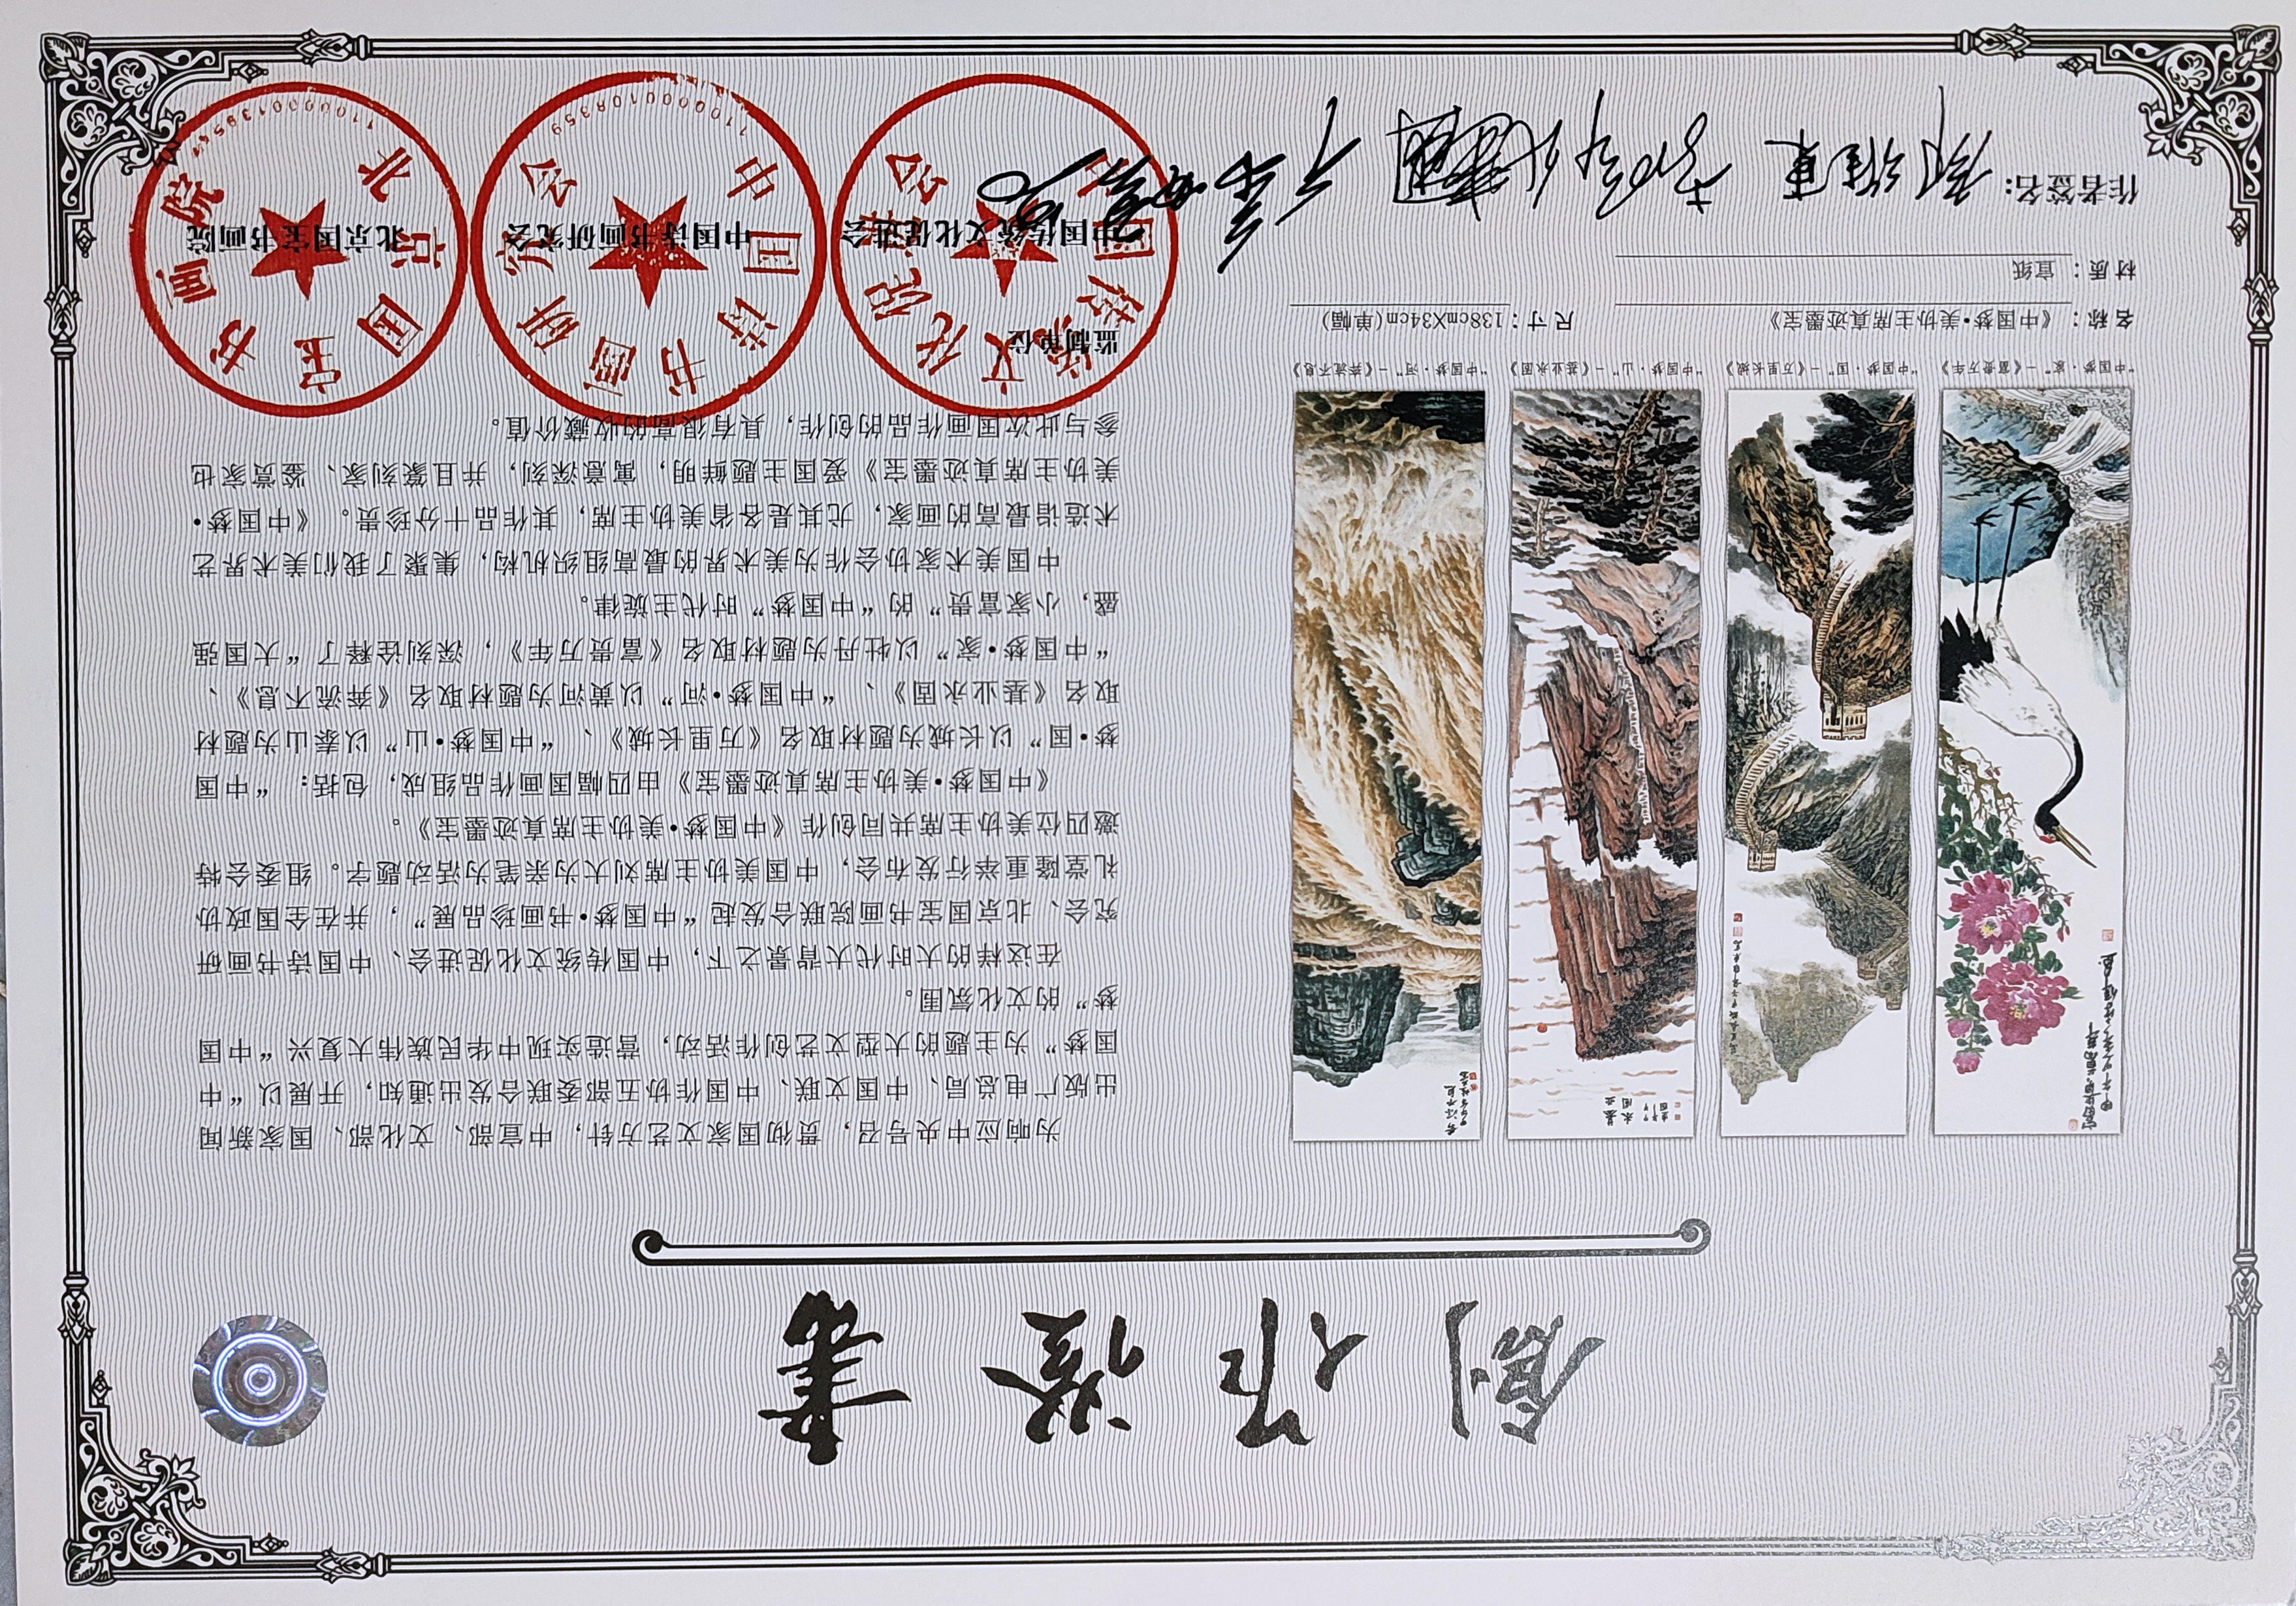 創作證書
为响应中央号召，贯彻国家文艺方针，中宣部、文化部、国家新闻
出版广电总局、中国文联、中国作协五部委联合发出通知，开展以“中
国梦”为主题的大型文艺创作活动，营造实现中华民族伟大复兴“中国
梦”的文化氛围。
在这样的大时代大背景之下，中国传统文化促进会、中国诗书画研
究会、北京国宝书画院联合发起“中国梦•书画珍品展”，并在全国政协
礼堂隆重举行发布会，中国美协主席刘大为亲笔为活动题字。组委会特
邀四位美协主席共同创作《中国梦•美协主席真迹墨宝》。
《中国梦•美协主席真迹墨宝》由四幅国画作品组成，包括：“中国
梦•国”以长城为题材取名《万里长城》、“中国梦•山”以泰山为题材
取名《基业永固》、“中国梦•河”以黄河为题材取名《奔流不息》、
“中国梦•家”以牡丹为题材取名《富贵万年》，深刻诠释了“大国强
盛，小家富贵”的“中国梦”时代主旋律。
中国美术家协会作为美术界的最高组织机构，集聚了我们美术界艺
术造诣最高的画家，尤其是各省美协主席，其作品十分珍贵。《中国梦•
美协主席真迹墨宝》爱国主题鲜明，寓意深刻，并且篆刻家、鉴赏家也
参与此次国画作品的创作，具有很高的收藏价值。
“中国梦·家”—《富贵万年》
“中国梦·国”—《万里长城》
“中国梦·山”—《基业永固》
“中国梦·河”—《奔流不息》
名称：《中国梦•美协主席真迹墨宝》
尺寸：138cmX34cm(单幅)
材质：宣纸
作者签名：
监制单位
中国传统文化促进会
中国诗书画研究会
北京国宝书画院
中国诗书画研究会
1100001083359
北京国宝书画院
基业永固
奔流不息